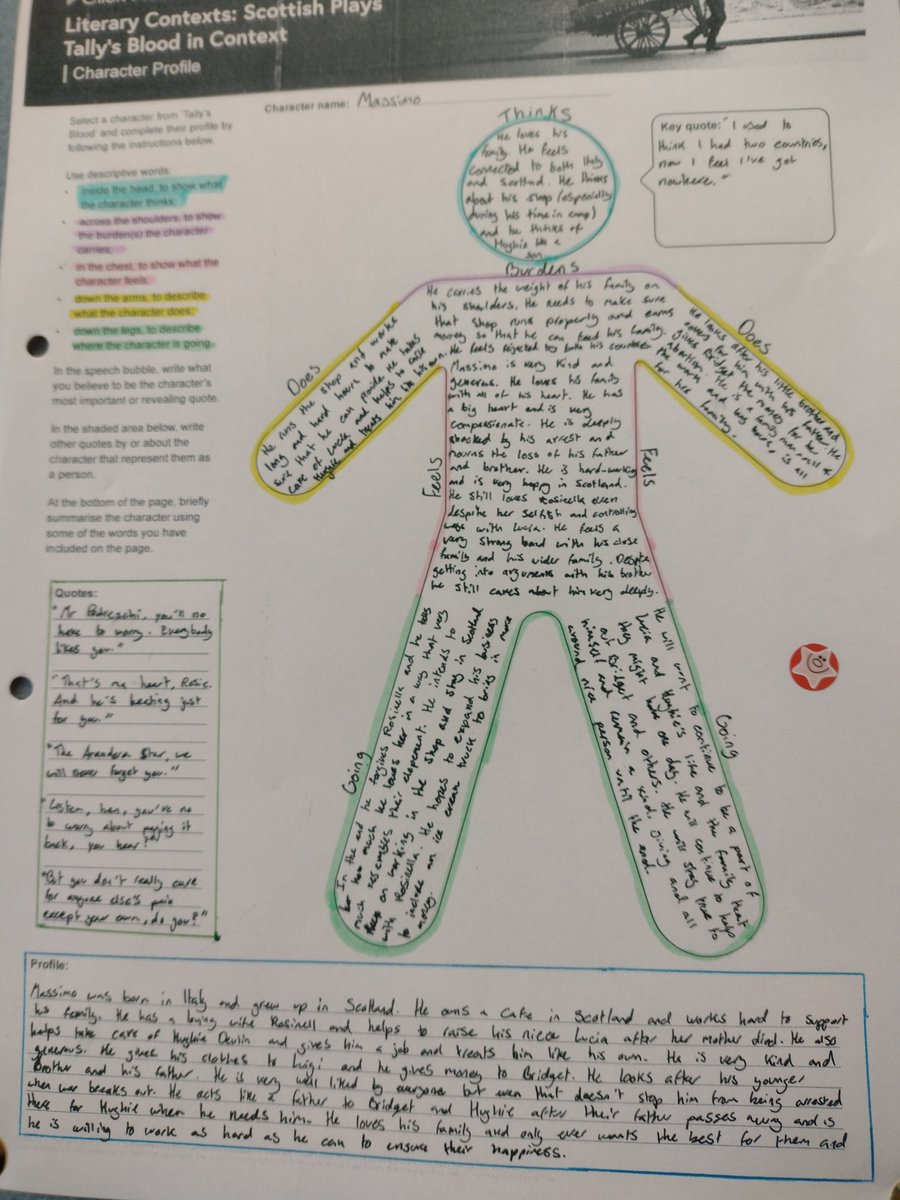 Literary Contexts: Scottish Plays
Tally's Blood in Context
| Character Profile
Select a character from 'Tally's
Blood' and complete their profile by
following the instructions below.
Use descriptive words
• inside the head, to show what
the character thinks;
• across the shoulders, to show
the burden(s) the character
carries;
• in the chest, to show what the
character feels;
• down the arms, to describe
what the character does;
• down the legs, to describe
where the character is going.
In the speech bubble, write what
you believe to be the character's
most important or revealing quote.
In the shaded area below, write
other quotes by or about the
character that represent them as
a person.
At the bottom of the page, briefly
summarise the character using
some of the words you have
included on the page.
Character name: Massimo
Thinks
He loves his
family. He feels
connected to both Italy
and Scotland. He thinks
about his shop (especially
during his time in camp)
and he thinks of
Hughie like a
son.
Key quote: "I used to
think I had two countries,
now I feel I've got
nowhere."
Burdens
He carries the weight of his family on
his shoulders. He needs to make sure
that shop runs properly and earns
money so that he can feed his family.
He feels rejected by both his countries
Does
He runs the shop and works
long and hard hours to make
sure that he can provide. He helps
care of Lucia and helps to raise
Hughie and treats him like his own.
Does
He looks after his little brother and
covers for him with his father. He
gives Bridget the money for her
abortion. He is a family man, all of
the work and long hours, is all
for his family.
Feels
Massimo is very kind and
generous. He loves his family
with all of his heart. He has
a big heart and is very
compassionate. He is deeply
shocked by his arrest and
mourns the loss of his father
and brother. He is hard-working
and is very happy in Scotland.
He still loves Rosinella even
despite her selfish and controlling
ways with Lucia. He feels a
very strong bond with his close
family and his wider family. Despite
getting into arguments with his brother
he still cares about him very deeply.
Feels
Going
In the end he forgives Rosinella and he tells
her how much he loves her in a way that very
much resembles their elopement. He intends to
keep on working in the shop and stay in Scotland
with Rosinella. He hopes to expand his business
to include an ice cream truck to bring in more
money.
Going
He will want to continue to be a part of
Lucia and Hughie's life and the family that
they might have one day. He will continue to help
out Bridget and others. He will stay true to
himself and remain a kind, giving and all
around nice person until the end.
Quotes:
"Mr Pedreschi, you'll no
have to worry. Everybody
likes you."
"That's ma heart, Rosie.
And he's beating just
for you."
"The Arandora Star, we
will never forget you."
"Listen, hen, you've no
to worry about paying it
back, you hear?"
"But you don't really care
for anyone else's pain
except your own, do you?"
Profile:
Massimo was born in Italy and grew up in Scotland. He owns a cafe in Scotland and works hard to support
his family. He has a loving wife Rosinell and helps to raise his niece Lucia after her mother died. He also
helps take care of Hughie Devlin and gives him a job and treats him like his own. He is very kind and
generous. He gives his clothes to Luigi and he gives money to Bridget. He looks after his younger
Brother and his father. He is very well liked by everyone but even that doesn't stop him from being arrested
when war breaks out. He acts like a father to Bridget and Hughie after their father passes away and is
there for Hughie when he needs him. He loves his family and only ever wants the best for them and
he is willing to work as hard as he can to ensure their happiness.